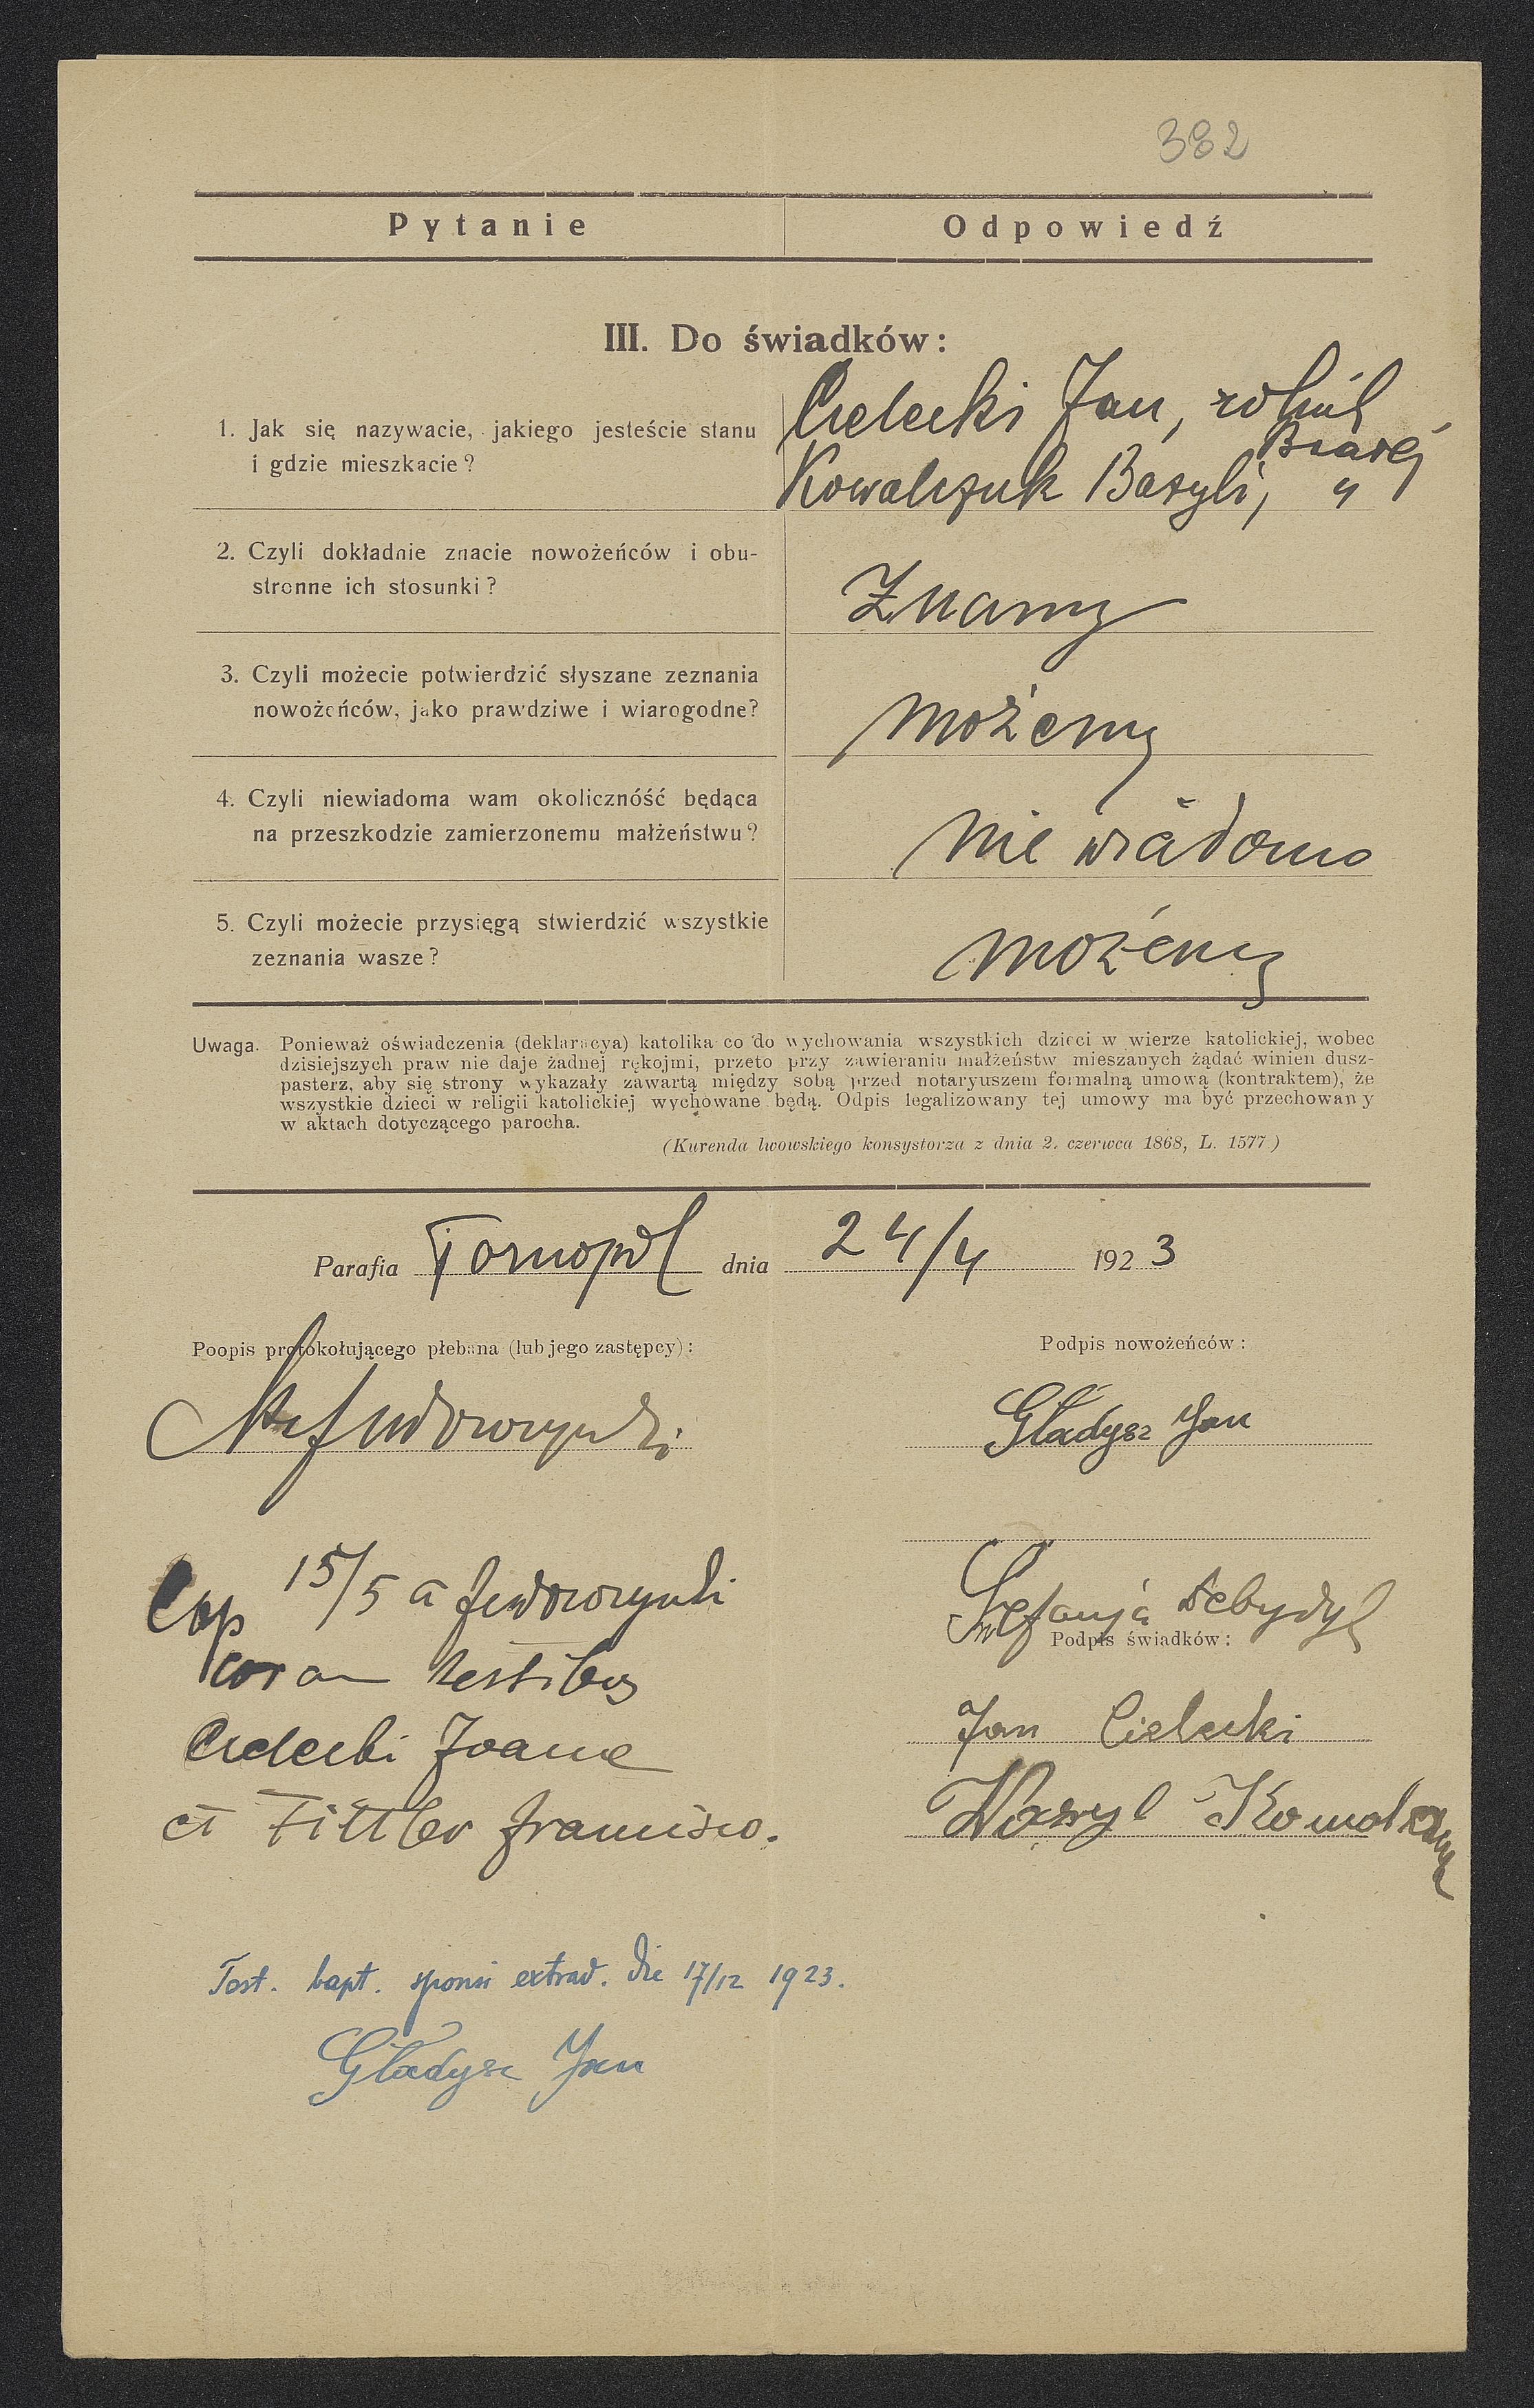 382
Pytanie Odpowiedź
III. Do świadków:
1. Jak się nazywacie, jakiego jesteście stanu
i gdzie mieszkacie?
Cielecki Jan,
Kowalczuk Bazyli, "
2. Czyli dokładnie znacie nowożeńców i obu-
stronne ich stosunki?
Znamy
3. Czyli możecie potwierdzić słyszane zeznania
nowożeńców, jako prawdziwe i wiarogodne?
możemy
4. Czyli niewiadoma wam okolicznóść będąca
na przeszkodzie zamierzonemu małżeństwu?
nie wiadomo
5. Czyli możecie przysięgą stwierdzić wszystkie
zeznania wasze?
możemy
Uwaga. Ponieważ oświadczenia (deklaracya) katolika co do wychowania wszystkich dzieci w wierze katolickiej, wobec
dzisiejszych praw nie daje żadnej rękojmi, przeto przy zawieraniu małżeństw mieszanych żądać winien dusz-
pasterz, aby się strony wykazały zawartą między sobą przed notaryuszem formalną umową (kontraktem), że
wszystkie dzieci w religii katolickiej wychowane będą. Odpis legalizowany tej umowy ma być przechowany
w aktach dotyczącego parocha.
(Kurenda lwowskiego konsystorza z dnia 2. czerwca 1868, L. 1577.)
Parafia Tarnopol dnia 24/4 1923
Poopis protokołującego plebana (lub jego zastępcy):
Podpis nowożeńców:
Gładysz Jan
Cop 15/5 a
Stefanja
Podpis świadków:
coram testibus
Jan Cielecki
Cielecki Joane
Wasyl
et Fittler Francisco.
Test. bapt. sponsi extrad. die 17/12 1923.
Gładysz Jan